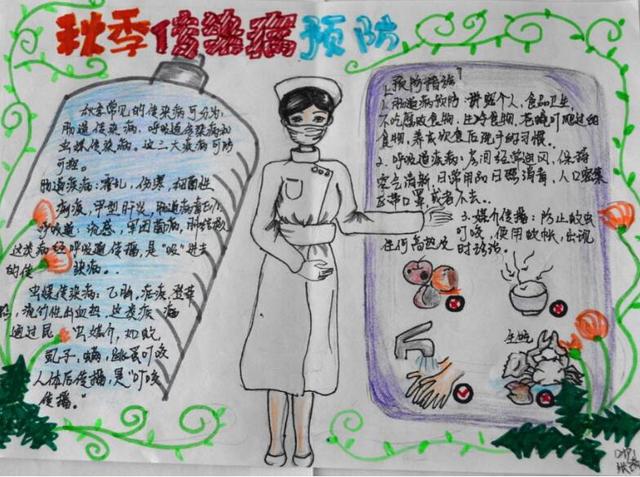 秋季传染病预防
秋季常见的传染病可分为:
肠道传染病、呼吸道传染病和
虫媒传染病。这三大疾病可防
可控。
肠道疾病:霍乱,伤寒,细菌性
痢疾,甲型肝炎,
呼吸道:流感,军团菌病,
这类病经呼吸道传播,是“吸”进去
的传染病。
虫媒传染病:乙脑,疟疾,登革
热,流行性出血热,这类疾病
通过昆虫媒介,如蚊
虱子,螨,跳蚤叮咬
人体后传播,是“叮咬
传播。”
预防措施
1、肠道病预防:讲究个人、食品卫生,
不吃腐败食物、生冷食物、苍蝇叮爬过的
食物,养成饭前便后洗手的习惯。
2、呼吸道疾病:房间经常通风,保持
空气清新,日常用品日晒消毒,人口密集
区带口罩或者不去。
3、媒介传播:防止蚊虫
叮咬,使用蚊帐,出现
任何高热应
时诊治。
生吃